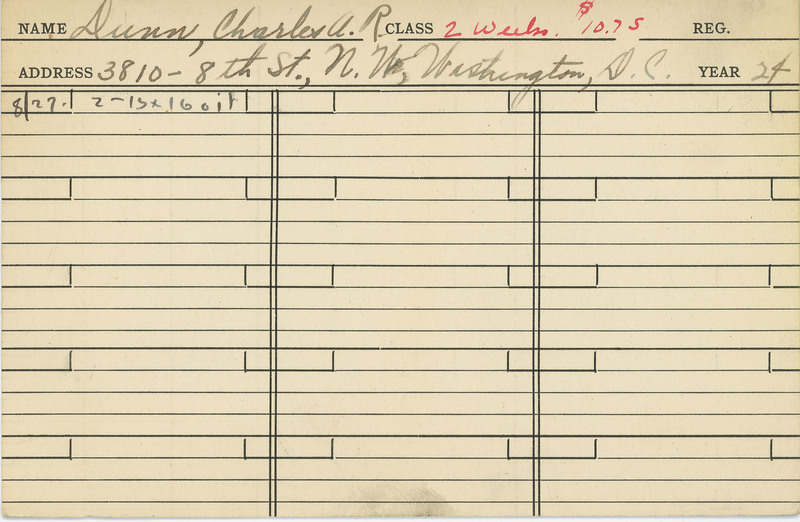 NAME Dunn, Charles A. R. CLASS 2 Weeks. $10.75 REG.
ADDRESS 3810 - 8th St., N. W., Washington, D. C. YEAR 24
8/27. 2-13x16 oil